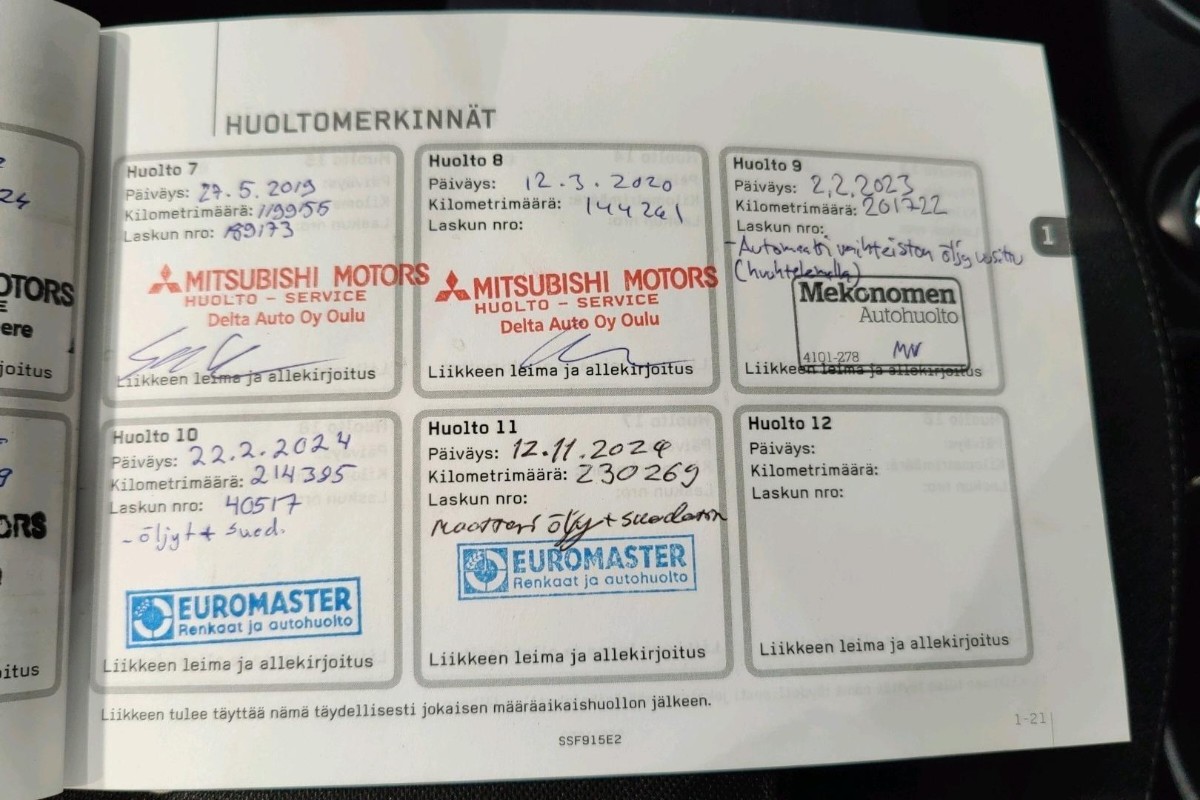 24
OTORS
E
ere
joitus
9
ORS
oitus
HUOLTOMERKINNÄT
Huolto 7
Päiväys: 27.5.2019
Kilometrimäärä: 119956
Laskun nro: 189173
MITSUBISHI MOTORS
HUOLTO - SERVICE
Delta Auto Oy Oulu
Liikkeen leima ja allekirjoitus
Huolto 8
Päiväys: 12.3.2020
Kilometrimäärä: 144261
Laskun nro:
MITSUBISHI MOTORS
HUOLTO - SERVICE
Delta Auto Oy Oulu
Liikkeen leima ja allekirjoitus
Huolto 9
Päiväys: 2.2.2023
Kilometrimäärä: 201722
Laskun nro:
-Automaatti vaihteiston öljy uusittu
(huuhtelemalla)
Mekonomen
Autohuolto
4101-278
Liikkeen leima ja allekirjoitus
1
Huolto 10
Päiväys: 22.2.2024
Kilometrimäärä: 214395
Laskun nro: 40517
- öljyt + suod.
EUROMASTER
Renkaat ja autohuolto
Liikkeen leima ja allekirjoitus
Huolto 11
Päiväys: 12.11.2024
Kilometrimäärä: 230269
Laskun nro:
moottori öljy + suodatin
EUROMASTER
Renkaat ja autohuolto
Liikkeen leima ja allekirjoitus
Huolto 12
Päiväys:
Kilometrimäärä:
Laskun nro:
Liikkeen leima ja allekirjoitus
Liikkeen tulee täyttää nämä täydellisesti jokaisen määräaikaishuollon jälkeen.
1-21
SSF915E2